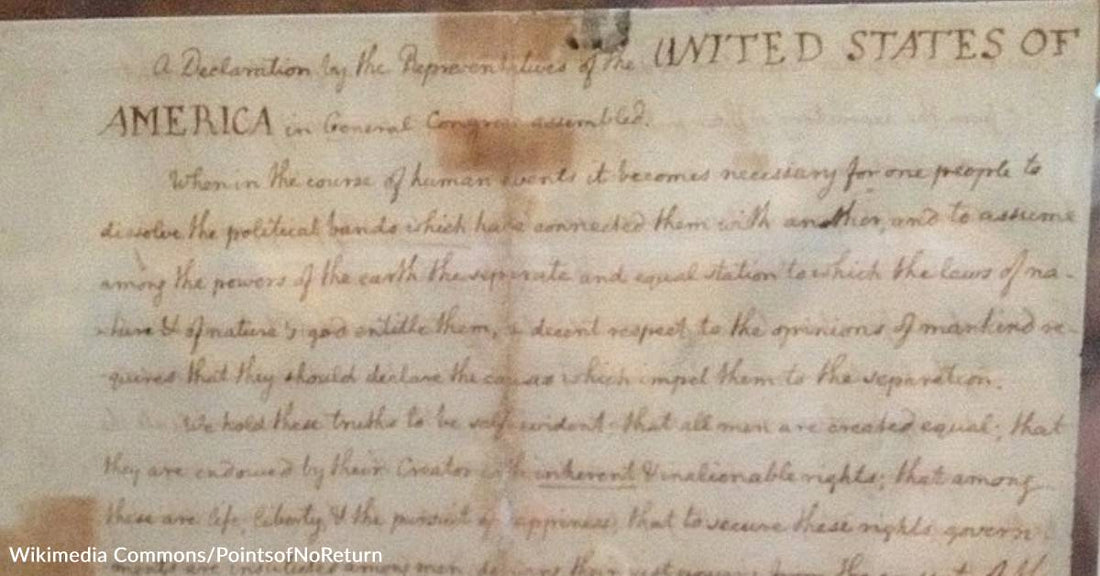 A Declaration by the Representatives of the UNITED STATES OF
AMERICA in General Congress assembled.
When in the course of human events it becomes necessary for one people to
dissolve the political bands which have connected them with another, and to assume
among the powers of the earth the separate and equal station to which the laws of na-
-ture & of nature's god entitle them, a decent respect to the opinions of mankind re-
quires that they should declare the causes which impel them to the separation.
We hold these truths to be self-evident; that all men are created equal; that
they are endowed by their Creator with inherent & inalienable rights; that among
these are life, liberty, & the pursuit of happiness; that to secure these rights, govern
ments are instituted among men, deriving their just powers from the
Wikimedia Commons/PointsofNoReturn